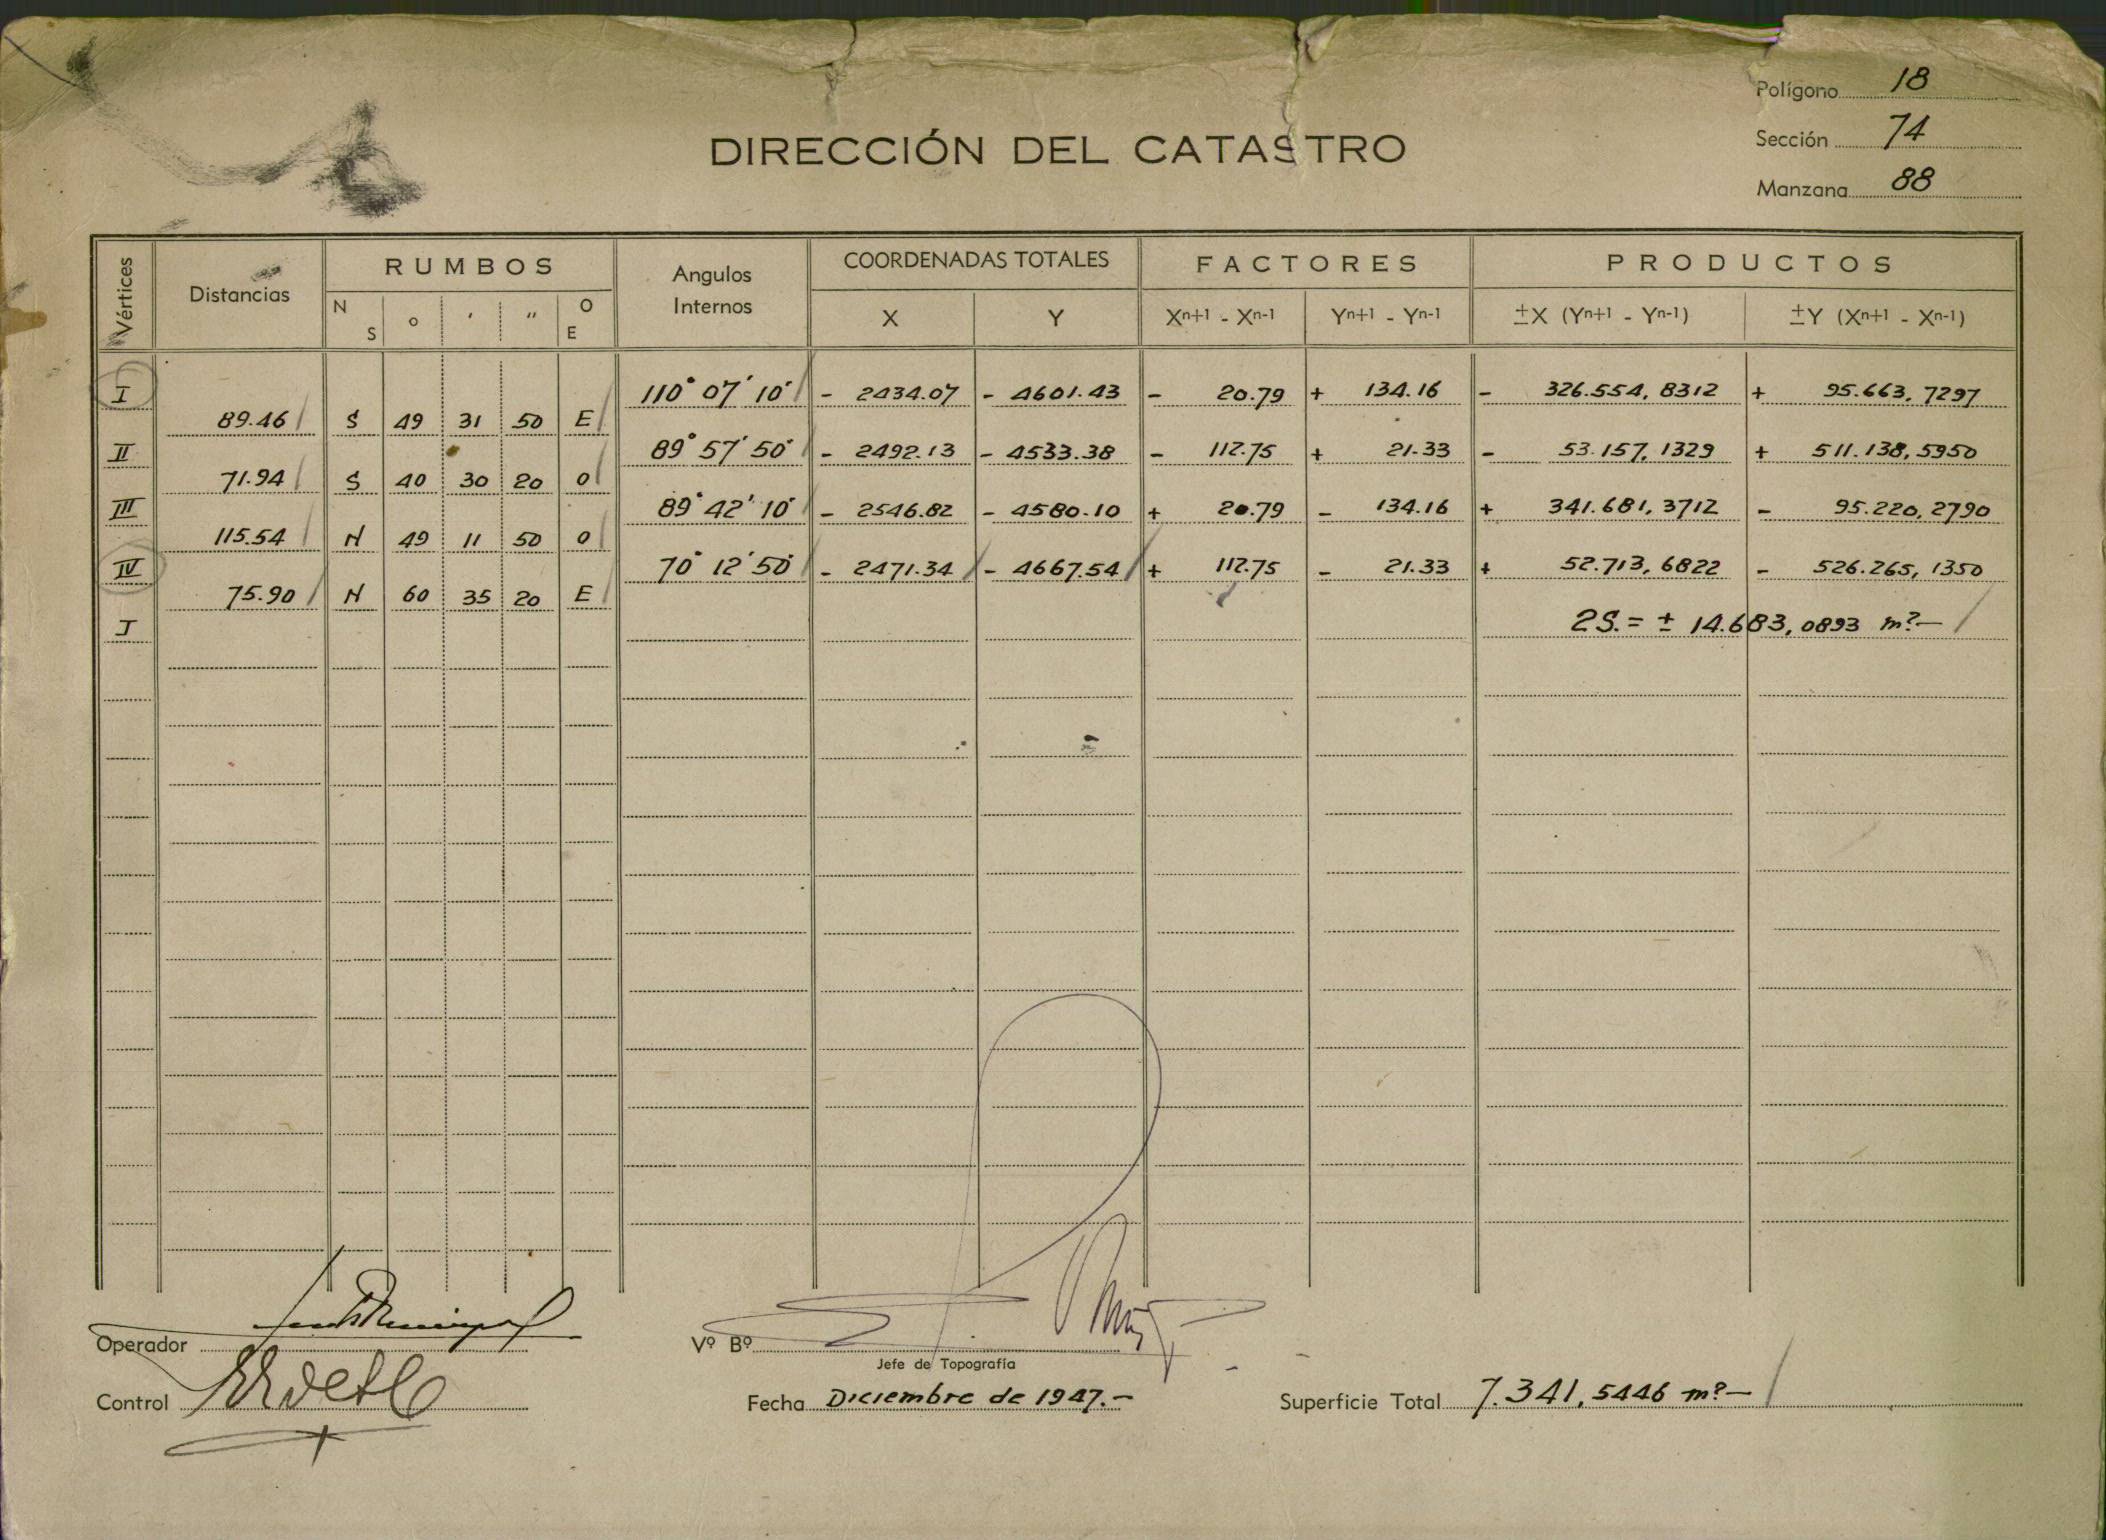 Polígono 18
DIRECCIÓN DEL CATASTRO
Sección 74
Manzana 88
Vértices Distancias RUMBOS Angulos Internos COORDENADAS TOTALES FACTORES PRODUCTOS
N S o ' " O E X Y Xn+1 - Xn-1 Yn+1 - Yn-1 ±X (Yn+1 - Yn-1) ±Y (Xn+1 - Xn-1)
I 110° 07' 10' - 2434.07 - 4601.43 - 20.79 + 134.16 - 326.554, 8312 + 95.663, 7297
89.46 S 49 31 50 E
II 89° 57' 50' - 2492.13 - 4533.38 - 112.75 + 21.33 - 53.157, 1329 + 511.138, 5950
71.94 S 40 30 20 O
III 89° 42' 10' - 2546.82 - 4580.10 + 20.79 - 134.16 + 341.681, 3712 - 95.220, 2790
115.54 N 49 11 50 O
IV 70° 12' 50' - 2471.34 - 4667.54 + 112.75 - 21.33 + 52.713, 6822 - 526.265, 1350
75.90 N 60 35 20 E
I 2S.= ± 14.683, 0893 m².-
Operador
Vº Bº
Jefe de Topografía
Control
Fecha Diciembre de 1947.-
Superficie Total 7.341, 5446 m².-